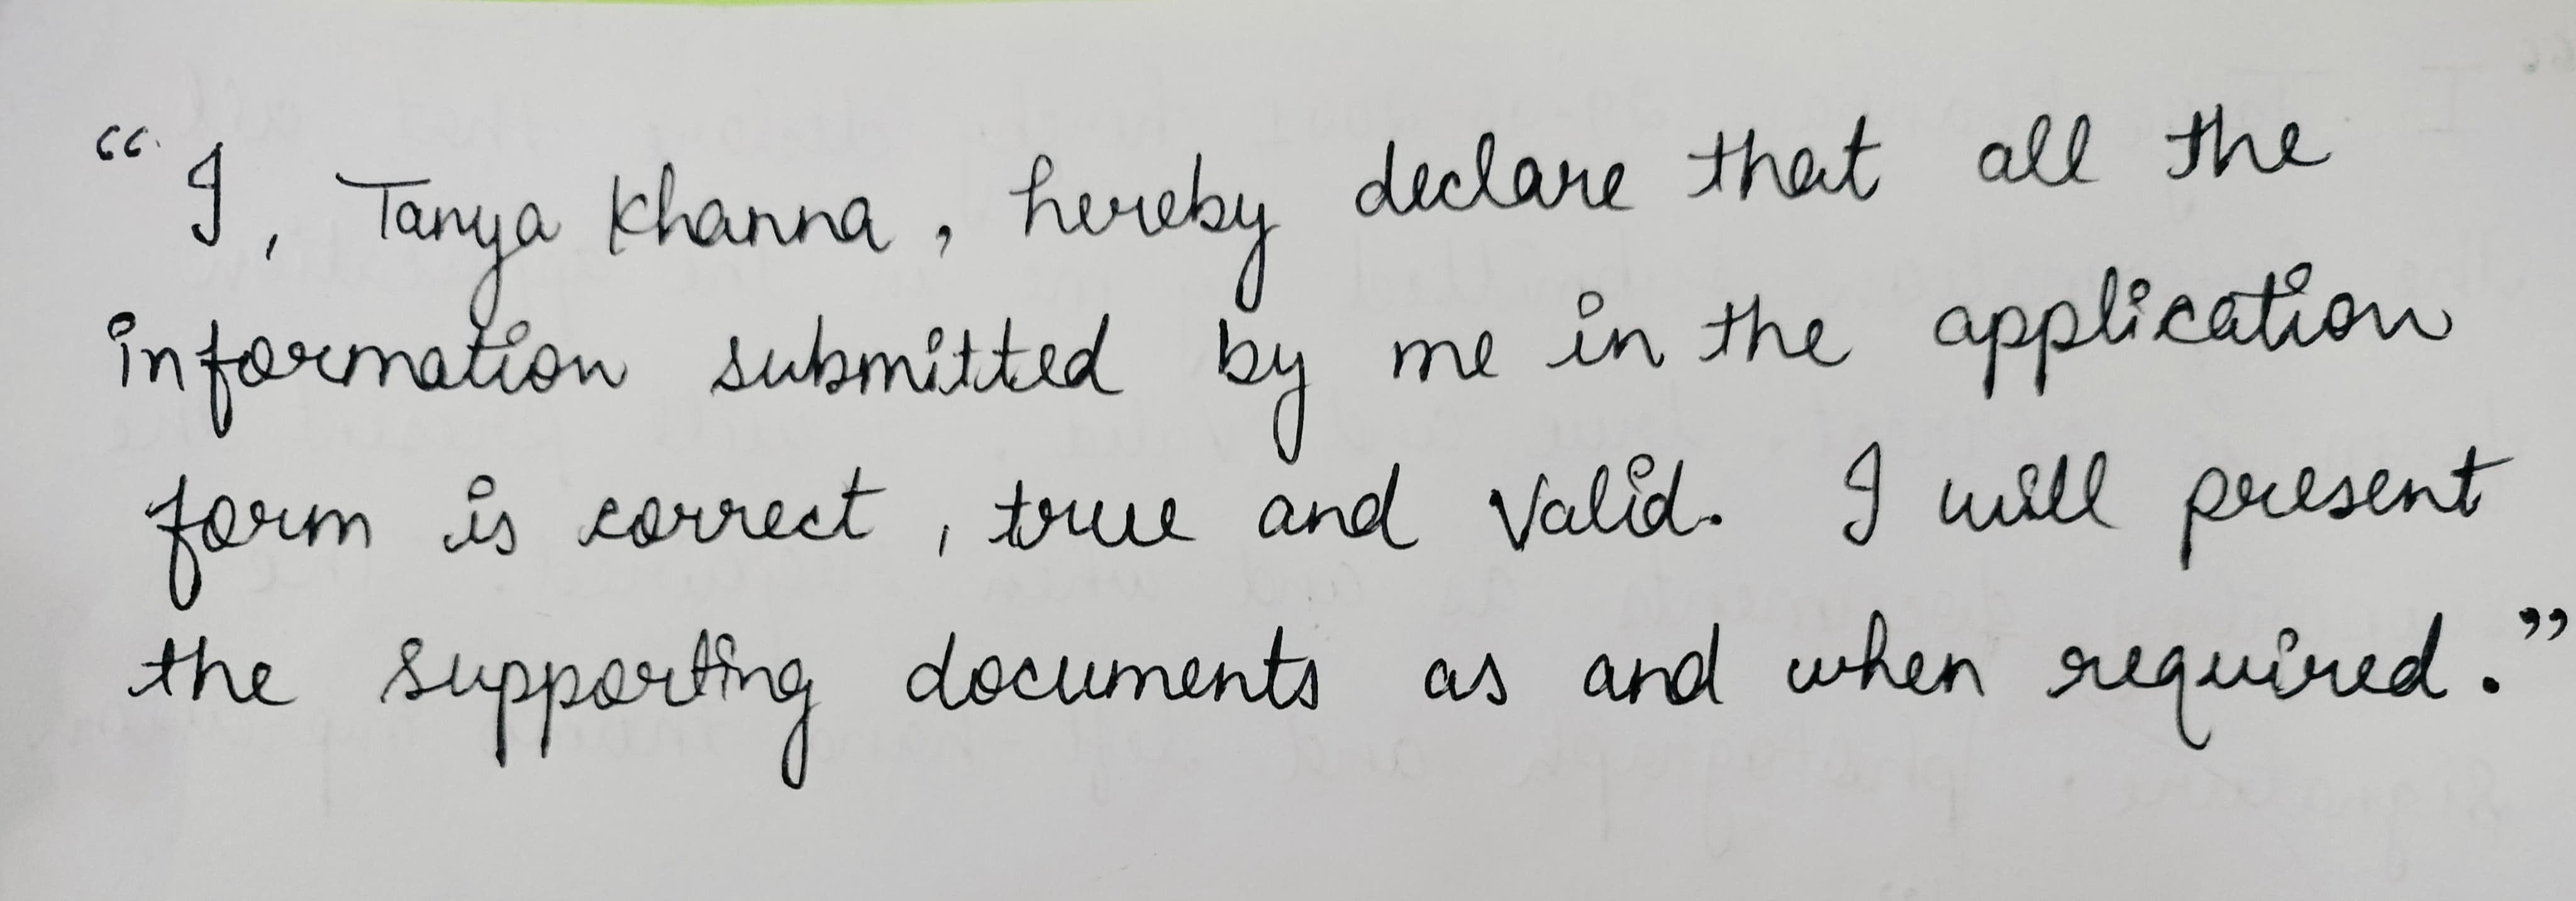 “I, Tanya Khanna, hereby declare that all the
information submitted by me in the application
form is correct, true and Valid. I will present
the supporting documents as and when required.”